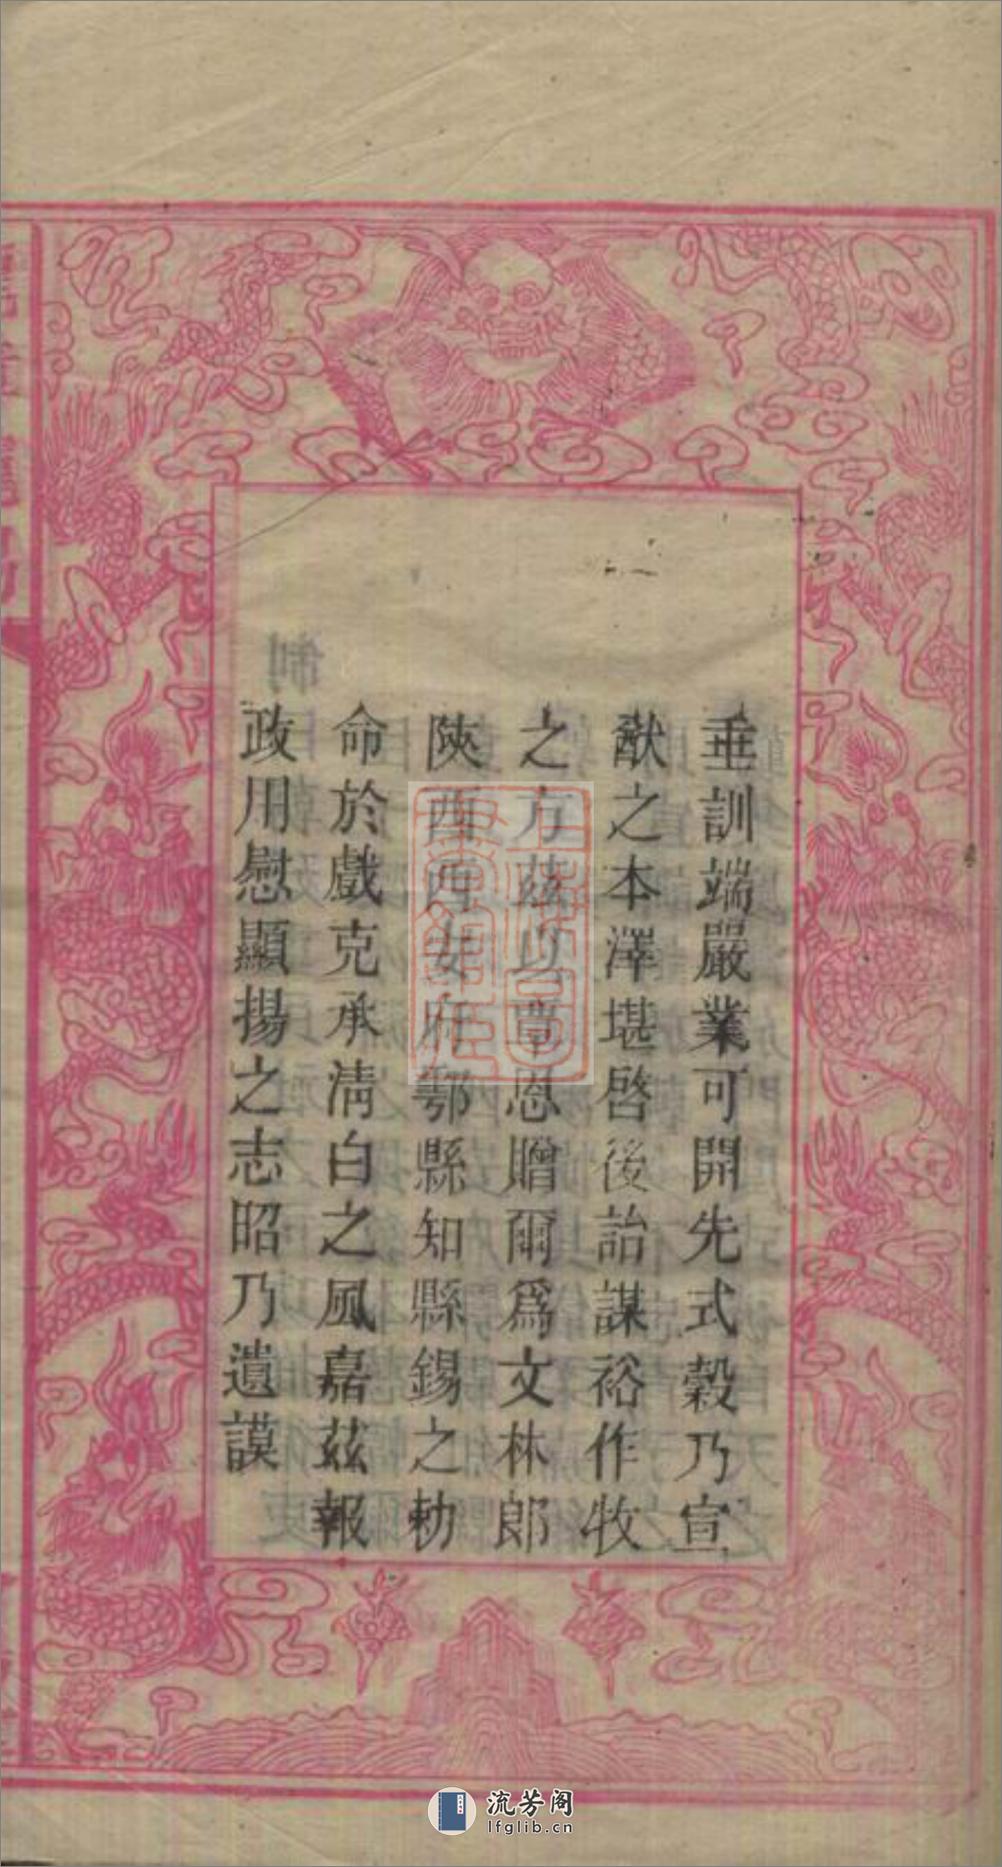 垂訓端嚴業可開先式穀乃宣
猷之本澤堪啓後詒謀裕作牧
之方茲以覃恩贈爾爲文林郎
陝西西安府鄠縣知縣錫之勅
命於戲克承淸白之風嘉茲報
政用慰顯揚之志昭乃遺謨
流芳阁
lfglib.cn